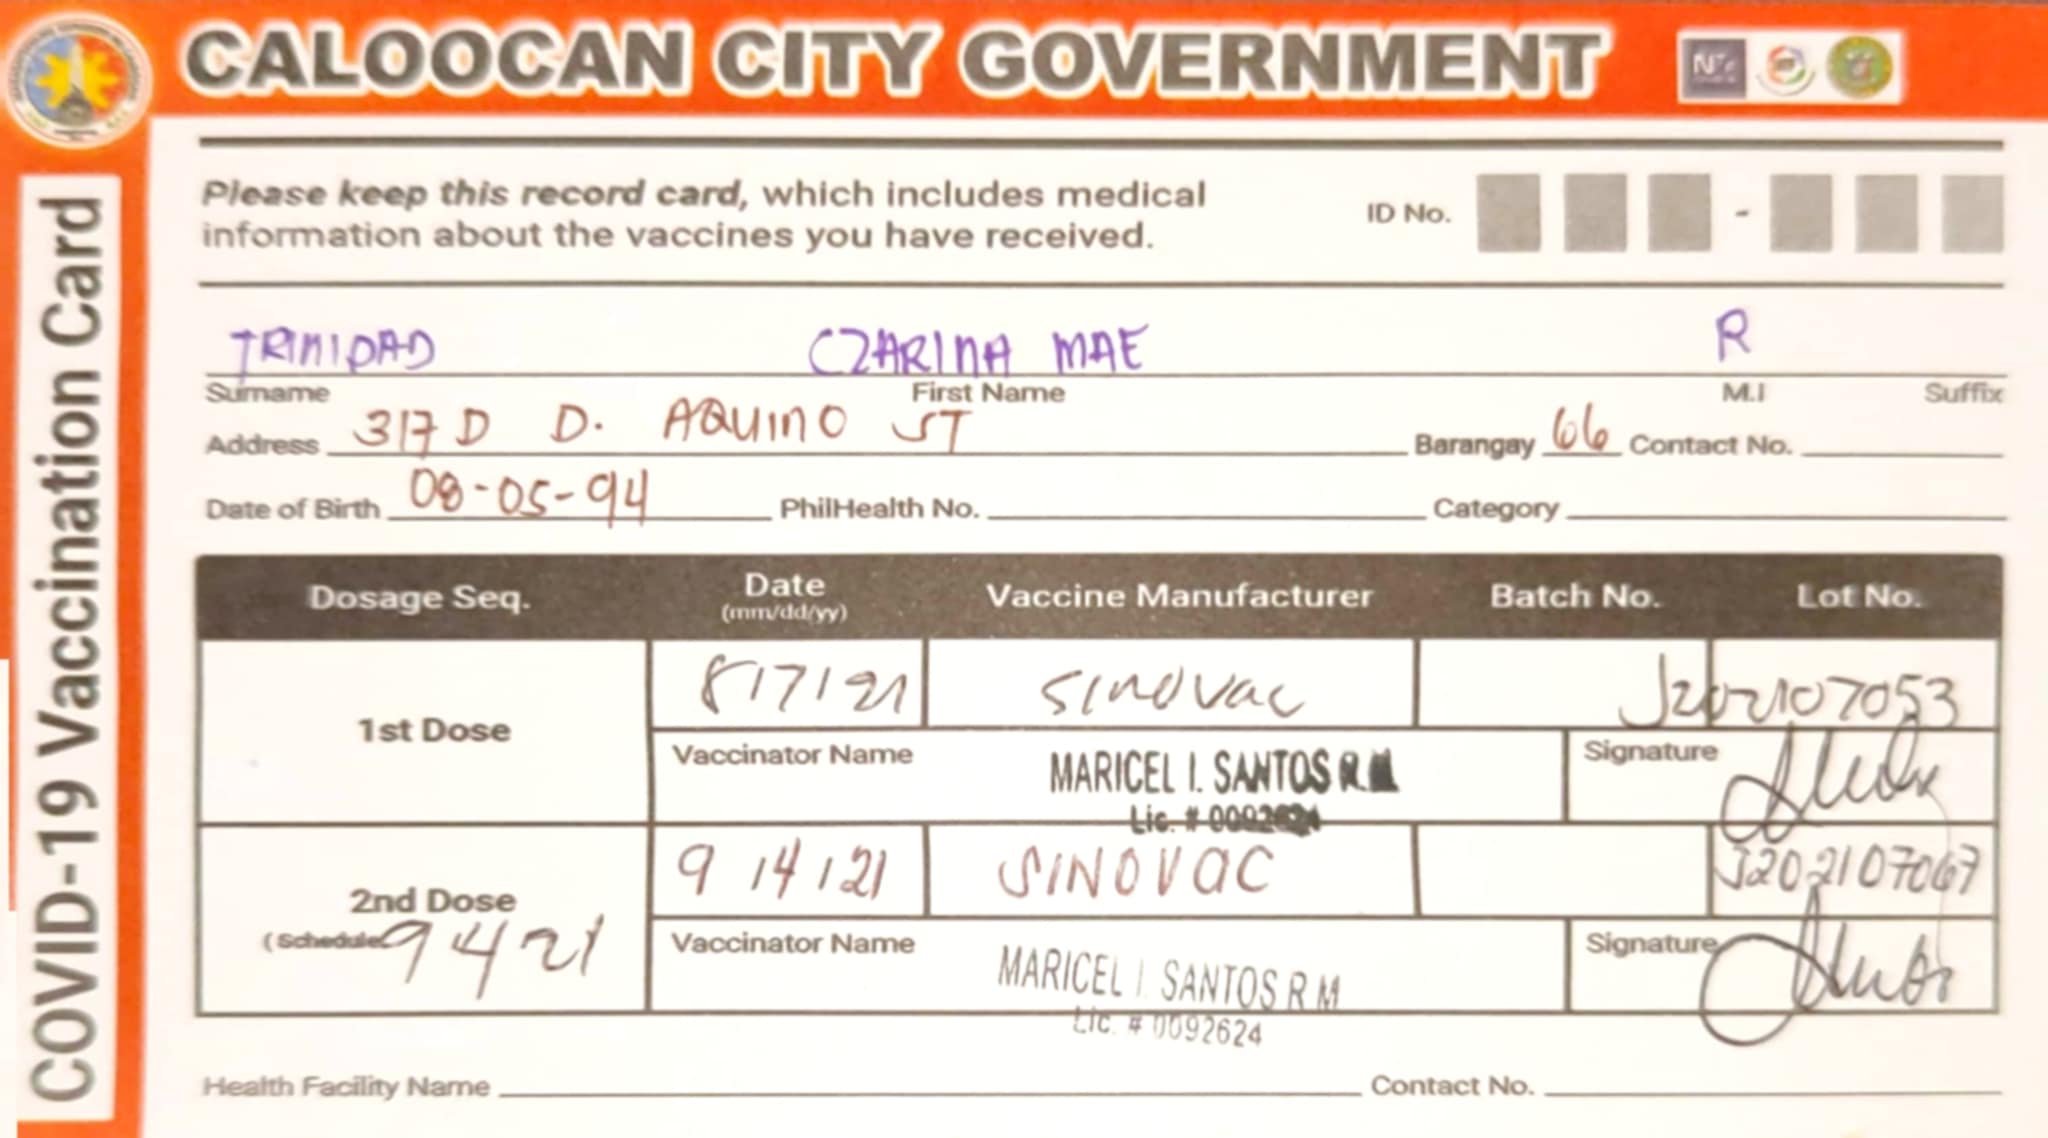 CALOOCAN CITY GOVERNMENT
COVID-19 Vaccination Card
Please keep this record card, which includes medical
information about the vaccines you have received.
ID No. -
TRINIDAD CZARINA MAE R
Surname First Name M.I Suffix
Address 317 D D. AQUINO ST Barangay 66 Contact No.
Date of Birth 08-05-94 PhilHealth No. Category
Dosage Seq. Date (mm/dd/yy) Vaccine Manufacturer Batch No. Lot No.
1st Dose 8 17 21 Sinovac J202107053
Vaccinator Name MARICEL I. SANTOS R M Signature
Lic. # 0092624
2nd Dose 9 14 21 SINOVAC J202107067
(Schedule 9 4 21
Vaccinator Name MARICEL I. SANTOS R M Signature
Lic. # 0092624
Health Facility Name Contact No.